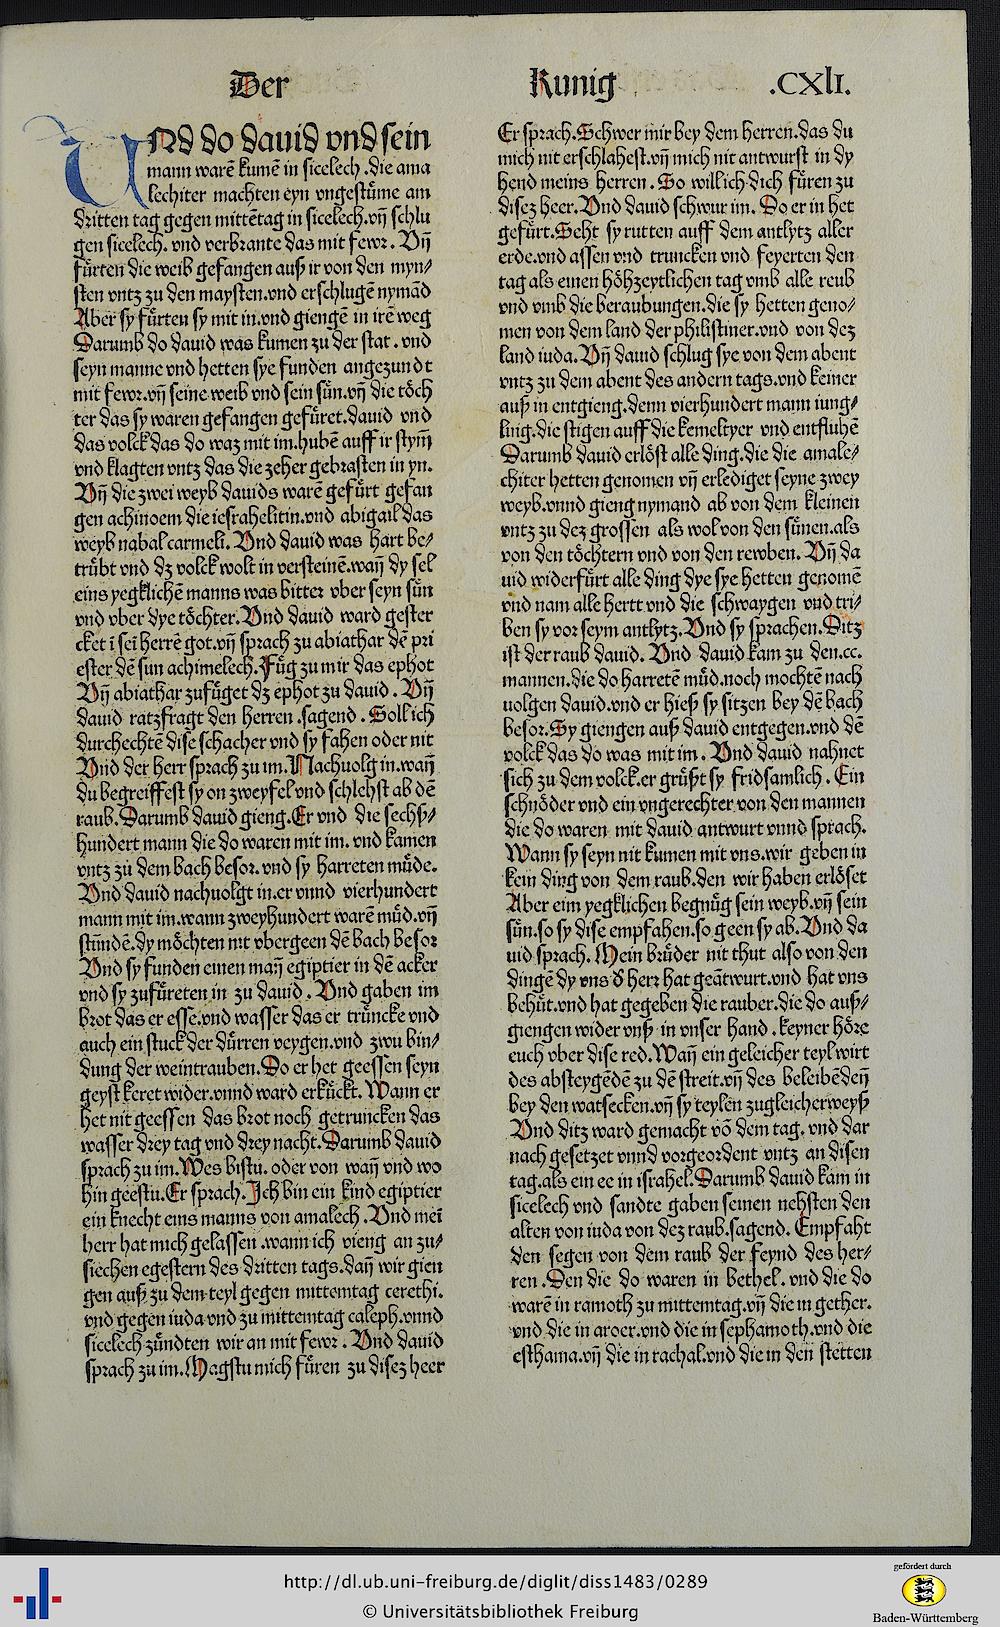 Der
Kunig
.CXLI.
UNd do dauid vnd sein
mann warẽ kumẽ in sicelech .die ama
lechiter machten eyn vngestuͤme am
dritten tag gegen mittẽtag in sicelech.vñ schlu
gen sicelech. vnd verbrante das mit fewr. Vñ
fuͤrten die weib gefangen auß ir von den myn/
sten vntz zu den maysten.vnd erschlugẽ nymãd
Aber sy fuͤrten sy mit in.vnd giengẽ in irẽ weg
Darumb do dauid was kumen zu der stat. vnd
seyn manne vnd hetten sye funden angezundt
mit fewr.vñ seine weib vnd sein suͤn.vñ die toͤch
ter das sy waren gefangen gefuͤret.dauid vnd
das volck das do waz mit im.hubẽ auff ir stym̃
vnd klagten vntz das die zeher gebrasten in yn.
Vñ die zwei weyb dauids warẽ gefuͤrt gefan
gen achinoem die iesrahelitin.vnd abigail das
weyb nabal carmeli. Vnd dauid was hart be/
truͤbt vnd dz volck wolt in versteinẽ.wañ dy sel
eins yegklichẽ manns was bitter vber seyn suͤn
vnd vber dye toͤchter. Vnd dauid ward gester
cket ĩ sei herrẽ got.vñ sprach zu abiathar dẽ pri
ester dẽ sun achimelech. Fuͤg zu mir das ephot
Vñ abiathar zufuͤget dz ephot zu dauid . Vñ
dauid ratzfragt den herren .sagend . Soll ich
durchechtẽ dise schacher vnd sy fahen oder nit
Vnd der herr sprach zu im. Nachuolg in.wañ
du begreiffest sy on zweyfel vnd schlehst ab dẽ
raub. Darumb dauid gieng. Er vnd die sechs/
hundert mann die do waren mit im. vnd kamen
vntz zu dem bach besor. vnd sy harreten muͤde.
Vnd dauid nachuolgt in.er vnnd vierhundert
mann mit im.wann zweyhundert warẽ muͤd.vñ
stundẽ.dy moͤchten nit vbergeen dẽ bach besor
Vnd sy funden einen mañ egiptier in dẽ acker
vnd sy zufuͤreten in zu dauid . Vnd gaben im
brot das er esse.vnd wasser das er truͤncke vnd
auch ein stuck der duͤrren veygen.vnd zwu bin/
dung der weintrauben. Do er het geessen seyn
geyst keret wider.vnnd ward erkuͤckt. Wann er
het nit geessen das brot noch getruncken das
wasser drey tag vnd drey nacht. Darumb dauid
sprach zu im. Wes bistu. oder von wañ vnd wo
hin geestu. Er sprach. Ich bin ein kind egiptier
ein knecht eins manns von amalech . Vnd mei
herr hat mich gelassen .wann ich vieng an zu/
siechen egestern des dritten tags.dañ wir gien
gen auß zu dem teyl gegen mittemtag cerethi.
vnd gegen iuda vnd zu mittemtag caleph.vnnd
sicelech zuͤndten wir an mit fewr . Vnd dauid
sprach zu im. Magstu mich fuͤren zu disez heer
Er sprach. Schwer mir bey dem herren.das du
mich nit erschlahest.vñ mich nit antwurst in dy
hend meins herren . So will ich dich fuͤren zu
disez heer. Vnd dauid schwur im. Do er in het
gefuͤrt. Seht sy rutten auff dem antlytz aller
erde.vnd assen vnd truncken vnd feyerten den
tag als einen hoͤhzeytlichen tag vmb alle reub
vnd vmb die beraubungen.die sy hetten geno/
men von dem land der philistiner.vnd von dez
land iuda. Vñ dauid schlug sye von dem abent
vntz zu dem abent des andern tags.vnd keiner
auß in entgieng.denn vierhundert mann iung/
ling.die stigen auff die kemeltyer vnd entfluhẽ
Darumb dauid erloͤst alle ding.die die amale/
chiter hetten genomen vñ erlediget seyne zwey
weyb.vnnd gieng nymand ab von dem kleinen
vntz zu dez grossen als wol von den suͤnen.als
von den toͤchtern vnd von den rewben. Vñ da
uid widerfuͤrt alle ding dye sye hetten genomẽ
vnd nam alle hertt vnd die schwaygen vnd tri/
ben sy vor seym antlytz. Vnd sy sprachen. Ditz
ist der raub dauid. Vnd dauid kam zu den.cc.
mannen.die do harretẽ muͤd.noch mochtẽ nach
uolgen dauid.vnd er hieß sy sitzen bey dẽ bach
besor. Sy giengen auß dauid entgegen.vnd dẽ
volck das do was mit im . Vnd dauid nahnet
sich zu dem volck.er gruͤßt sy fridsamlich . Ein
schnoͤder vnd ein vngerechter von den mannen
die do waren mit dauid antwurt vnnd sprach.
Wann sy seyn nit kumen mit vns.wir geben in
kein ding von dem raub.den wir haben erloͤset
Aber eim yegklichen begnuͤg sein weyb.vñ sein
suͤn.so sy dise empfahen.so geen sy ab. Vnd da
uid sprach. Mein bruͤder nit thut also von den
dingẽ dy vns d̕ herr hat geãtwurt.vnd hat vns
behuͤt.vnd hat gegeben die rauber.die do auß/
giengen wider vnß in vnser hand .keyner hoͤre
euch vber dise red. Wañ ein geleicher teyl wirt
des absteygẽdẽ zu dẽ streit.vñ des beleibẽdeñ
bey den watsecken.vñ sy teylen zugleicherweyß
Vnd ditz ward gemacht võ dem tag. vnd dar
nach gesetzet vnnd vorgeordent vntz an disen
tag.als ein ee in israhel. Darumb dauid kam in
sicelech vnd sandte gaben seinen nehsten den
alten von iuda von dez raub.sagend. Empfaht
den segen von dem raub der feynd des her/
ren . Den die do waren in bethel. vnd die do
warẽ in ramoth zu mittemtag.vñ die in gether.
vnd die in aroer.vnd die in sephamoth.vnd die
esthama.vñ die in rachal.vnd die in den stetten
http://dl.ub.uni-freiburg.de/diglit/diss1483/0289
© Universitätsbibliothek Freiburg
gefördert durch
Baden-Württemberg